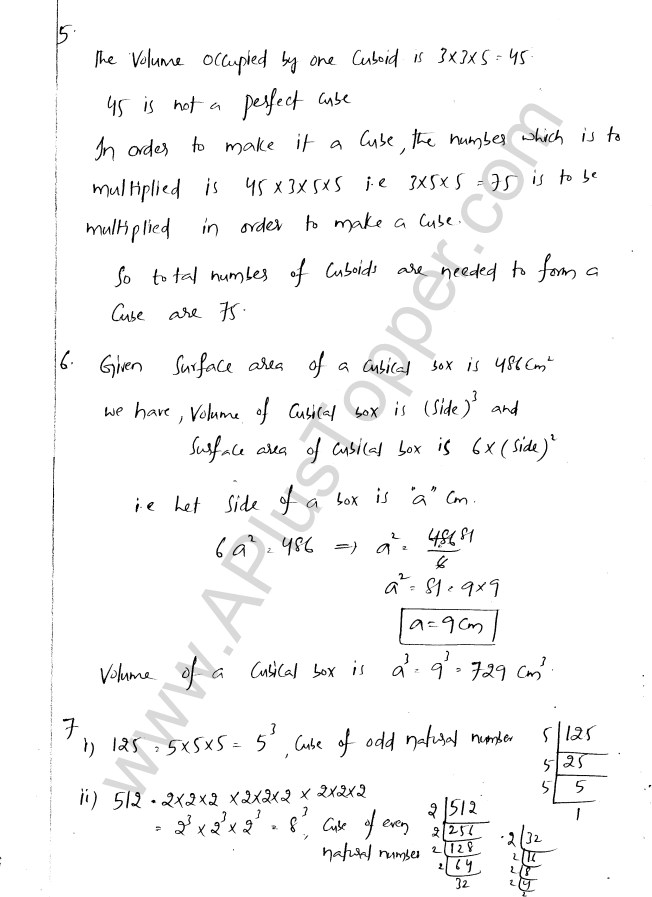 5.
The Volume occupied by one Cuboid is 3×3×5 = 45.
45 is not a perfect cube
In order to make it a Cube, the number which is to
multiplied is 45×3×5×5 i.e 3×5×5 = 75 is to be
multiplied in order to make a Cube.
So total number of Cuboids are needed to form a
Cube are 75.
6. Given Surface area of a Cubical box is 486 Cm²
we have, Volume of Cubical box is (side)³ and
Surface area of Cubical box is 6×(side)²
i.e Let Side of a box is "a" Cm.
6a² = 486 ⇒ a² = 486 81 / 6
a² = 81 = 9×9
a = 9 Cm
Volume of a Cubical box is a³ = 9³ = 729 Cm³.
7
i) 125 = 5×5×5 = 5³, Cube of odd natural number
5 125
5 25
5 5
1
ii) 512 = 2×2×2 × 2×2×2 × 2×2×2
= 2³ × 2³ × 2³ = 8³, Cube of even
natural number
2 512
2 256
2 128
2 64
32
2 32
2 16
2 8
2 4
2
www.APlusTopper.com